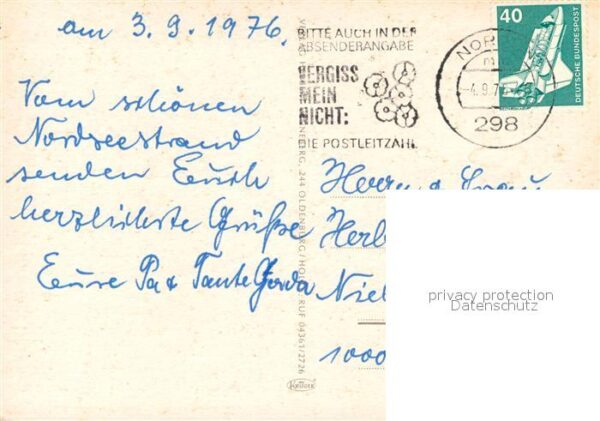 am 3.9.1976.
Vom schönen
Nordseestrand
senden Euch
herzlichste Grüße
Eure Pa & Tante Gerda
BITTE AUCH IN DER
ABSENDERANGABE
VERGISS
MEIN
NICHT:
DIE POSTLEITZAHL
NOR
4.9.7
298
40
DEUTSCHE BUNDESPOST
244 OLDENBURG / HOL RUF 04361/2726
Herrn & Frau
Herb
Niel
1000
privacy protection
Datenschutz